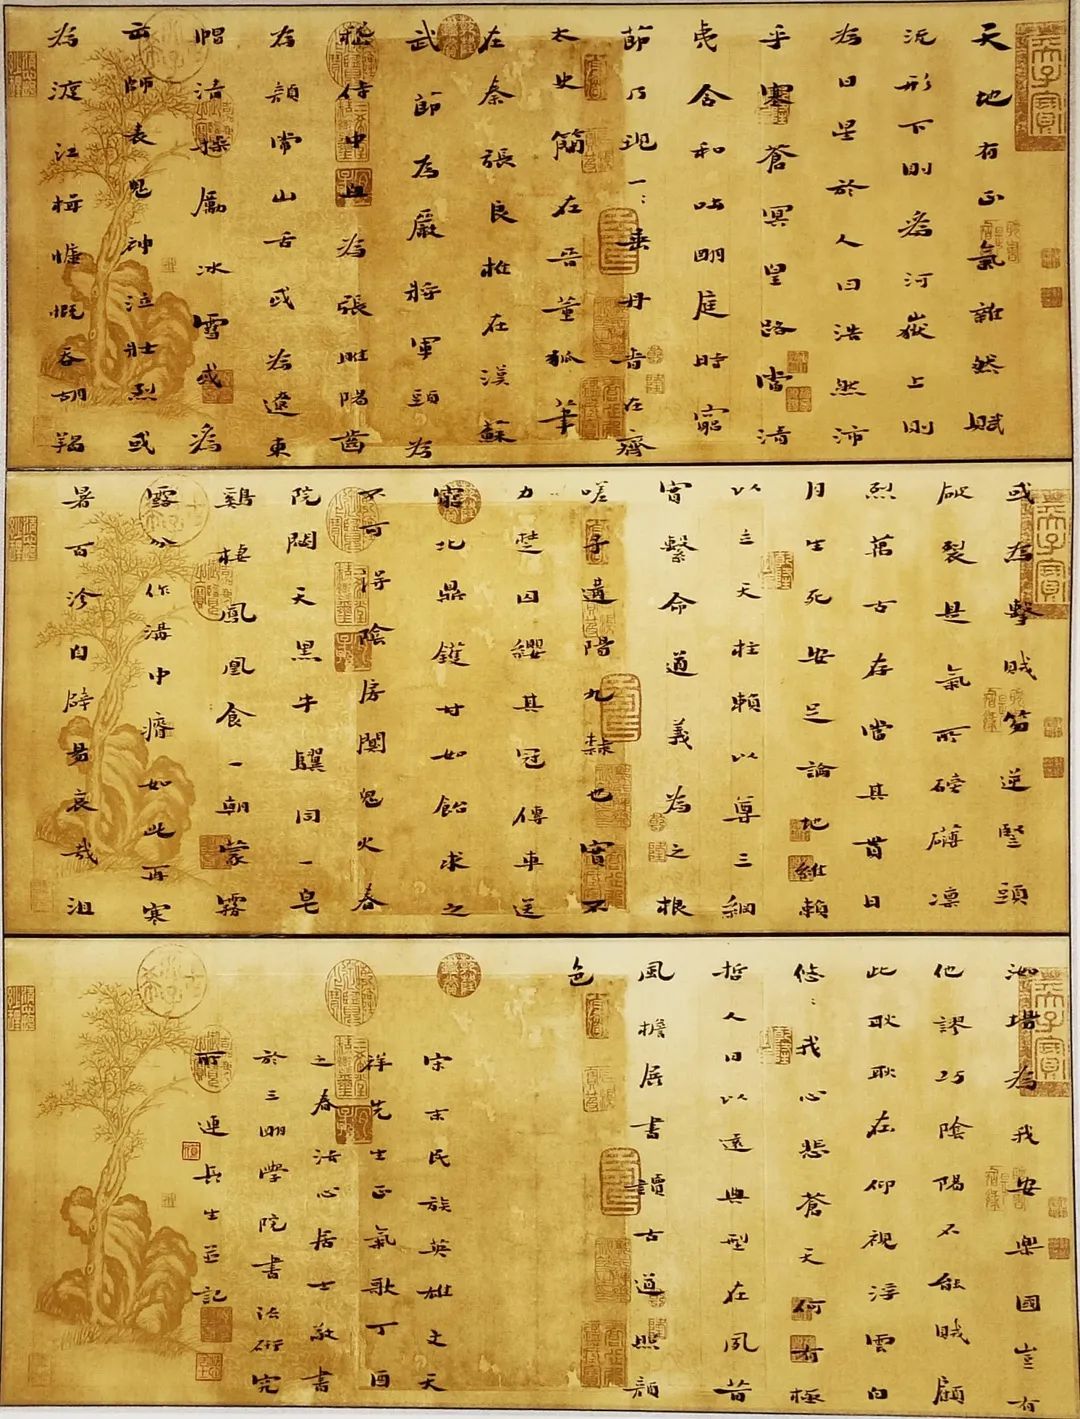 天地有正氣雜然賦
流形下則為河嶽上則
為日星於人曰浩然沛
乎塞蒼冥皇路當清
夷含和吐明庭時窮
節乃現一:垂丹青在齊
太史簡在晉董狐筆
在秦張良椎在漢蘇
武節為嚴將軍頭為
嵇侍中血為張睢陽齒
為顏常山舌或為遼東
帽清操厲冰雪或為
出師表鬼神泣壯烈或
為渡江楫慷慨吞胡羯
或為擊賊笏逆豎頭
破裂是氣所磅礴凜
烈萬古存當其貫日
月生死安足論地維賴
以立天柱賴以尊三綱
實繫命道義為之根
嗟予遘陽九隸也實不
力楚囚纓其冠傳車送
窮北鼎鑊甘如飴求之
不可得陰房闃鬼火春
院閟天黑牛驥同一皂
鷄棲鳳凰食一朝蒙霧
露分作溝中瘠如此再寒
暑百沴自辟易哀哉沮
洳場為我安樂國豈有
他謬巧陰陽不能賊顧
此耿耿在仰視浮雲白
悠:我心悲蒼天何有極
哲人日以遠典型在夙昔
風檐展書讀古道照顏
色
宋末民族英雄文天
祥先生正氣歌丁酉
之春法心居士敬書
於三明學院書法研究
所連長生並記